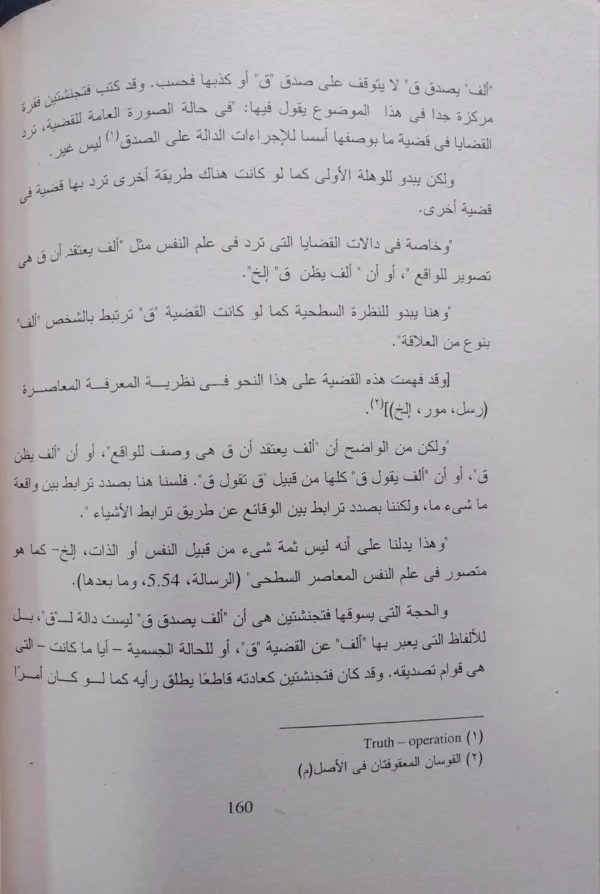 "ألف" يصدق ق" لا يتوقف على صدق "ق" أو كذبها فحسب. وقد كتب فتجنشتين فقرة
مركزة جدا فى هذا الموضوع يقول فيها: "فى حالة الصورة العامة للقضية، ترد
القضايا فى قضية ما بوصفها أسسا للإجراءات الدالة على الصدق(١) ليس غير.
ولكن يبدو للوهلة الأولى كما لو كانت هناك طريقة أخرى ترد بها قضية فى
قضية أخرى.
"وخاصة فى دالات القضايا التى ترد فى علم النفس مثل "ألف يعتقد أن ق هى
تصوير للواقع "، أو أن " ألف يظن ق" إلخ".
"وهنا يبدو للنظرة السطحية كما لو كانت القضية "ق" ترتبط بالشخص "ألف"
بنوع من العلاقة".
[وقد فهمت هذه القضية على هذا النحو فى نظرية المعرفة المعاصرة
(رسل، مور، إلخ)](٢).
"ولكن من الواضح أن "ألف يعتقد أن ق هى وصف للواقع"، أو أن "ألف يظن
ق"، أو أن "ألف يقول ق" كلها من قبيل "ق تقول ق". فلسنا هنا بصدد ترابط بين واقعة
ما شىء ما، ولكننا بصدد ترابط بين الوقائع عن طريق ترابط الأشياء ".
"وهذا يدلنا على أنه ليس ثمة شىء من قبيل النفس أو الذات، إلخ- كما هو
متصور فى علم النفس المعاصر السطحى" (الرسالة، 5.54، وما بعدها).
والحجة التى يسوقها فتجنشتين هى أن "ألف يصدق ق" ليست دالة لـ"ق"، بل
للألفاظ التى يعبر بها "ألف" عن القضية "ق"، أو للحالة الجسمية – أيا ما كانت – التى
هى قوام تصديقه. وقد كان فتجنشتين كعادته قاطعًا يطلق رأيه كما لو كان أمرًا
(١) Truth – operation
(٢) القوسان المعقوفتان فى الأصل(م)
160